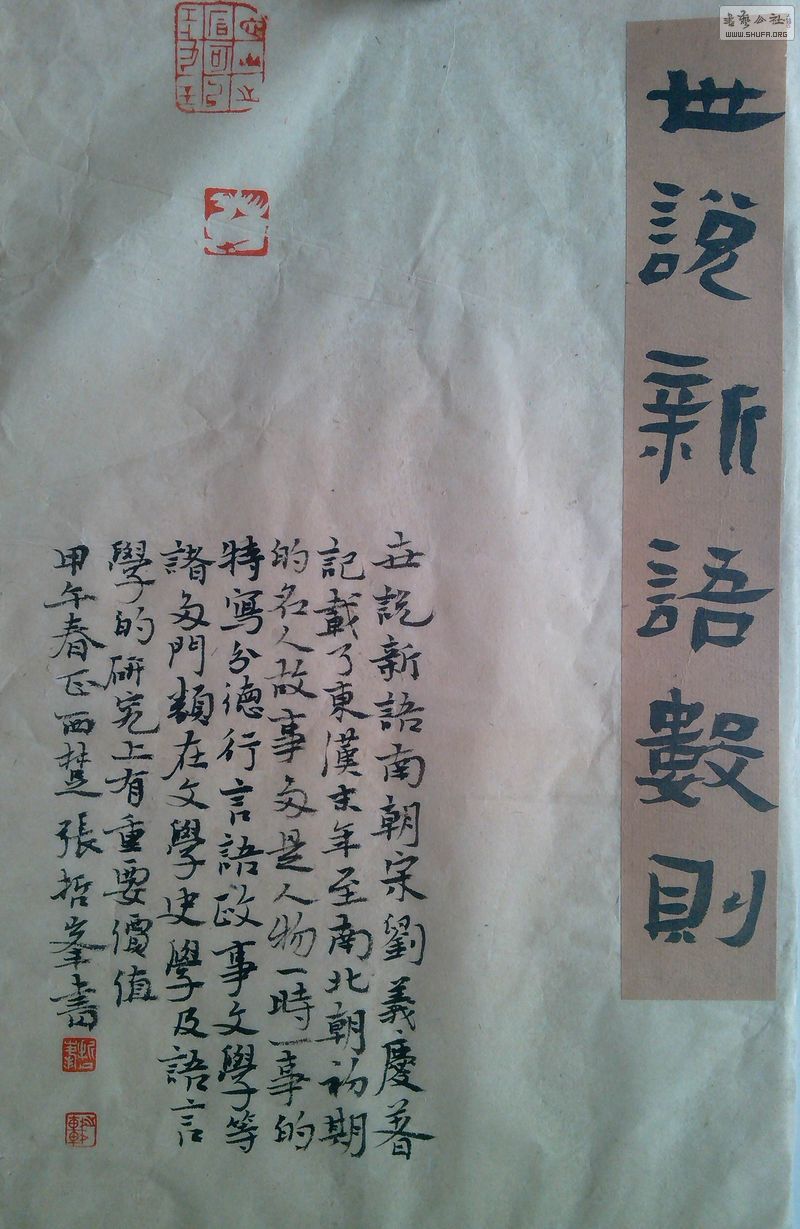 世說新語數則
世說新語南朝宋劉義慶著
記載了東漢末年至南北朝初期
的名人故事多是人物一時一事的
特寫分德行言語政事文學等
諸多門類在文學史學及語言
學的研究上有重要價值
甲午春正西楚張哲峯書
書藝公社
WWW.SHUFA.ORG